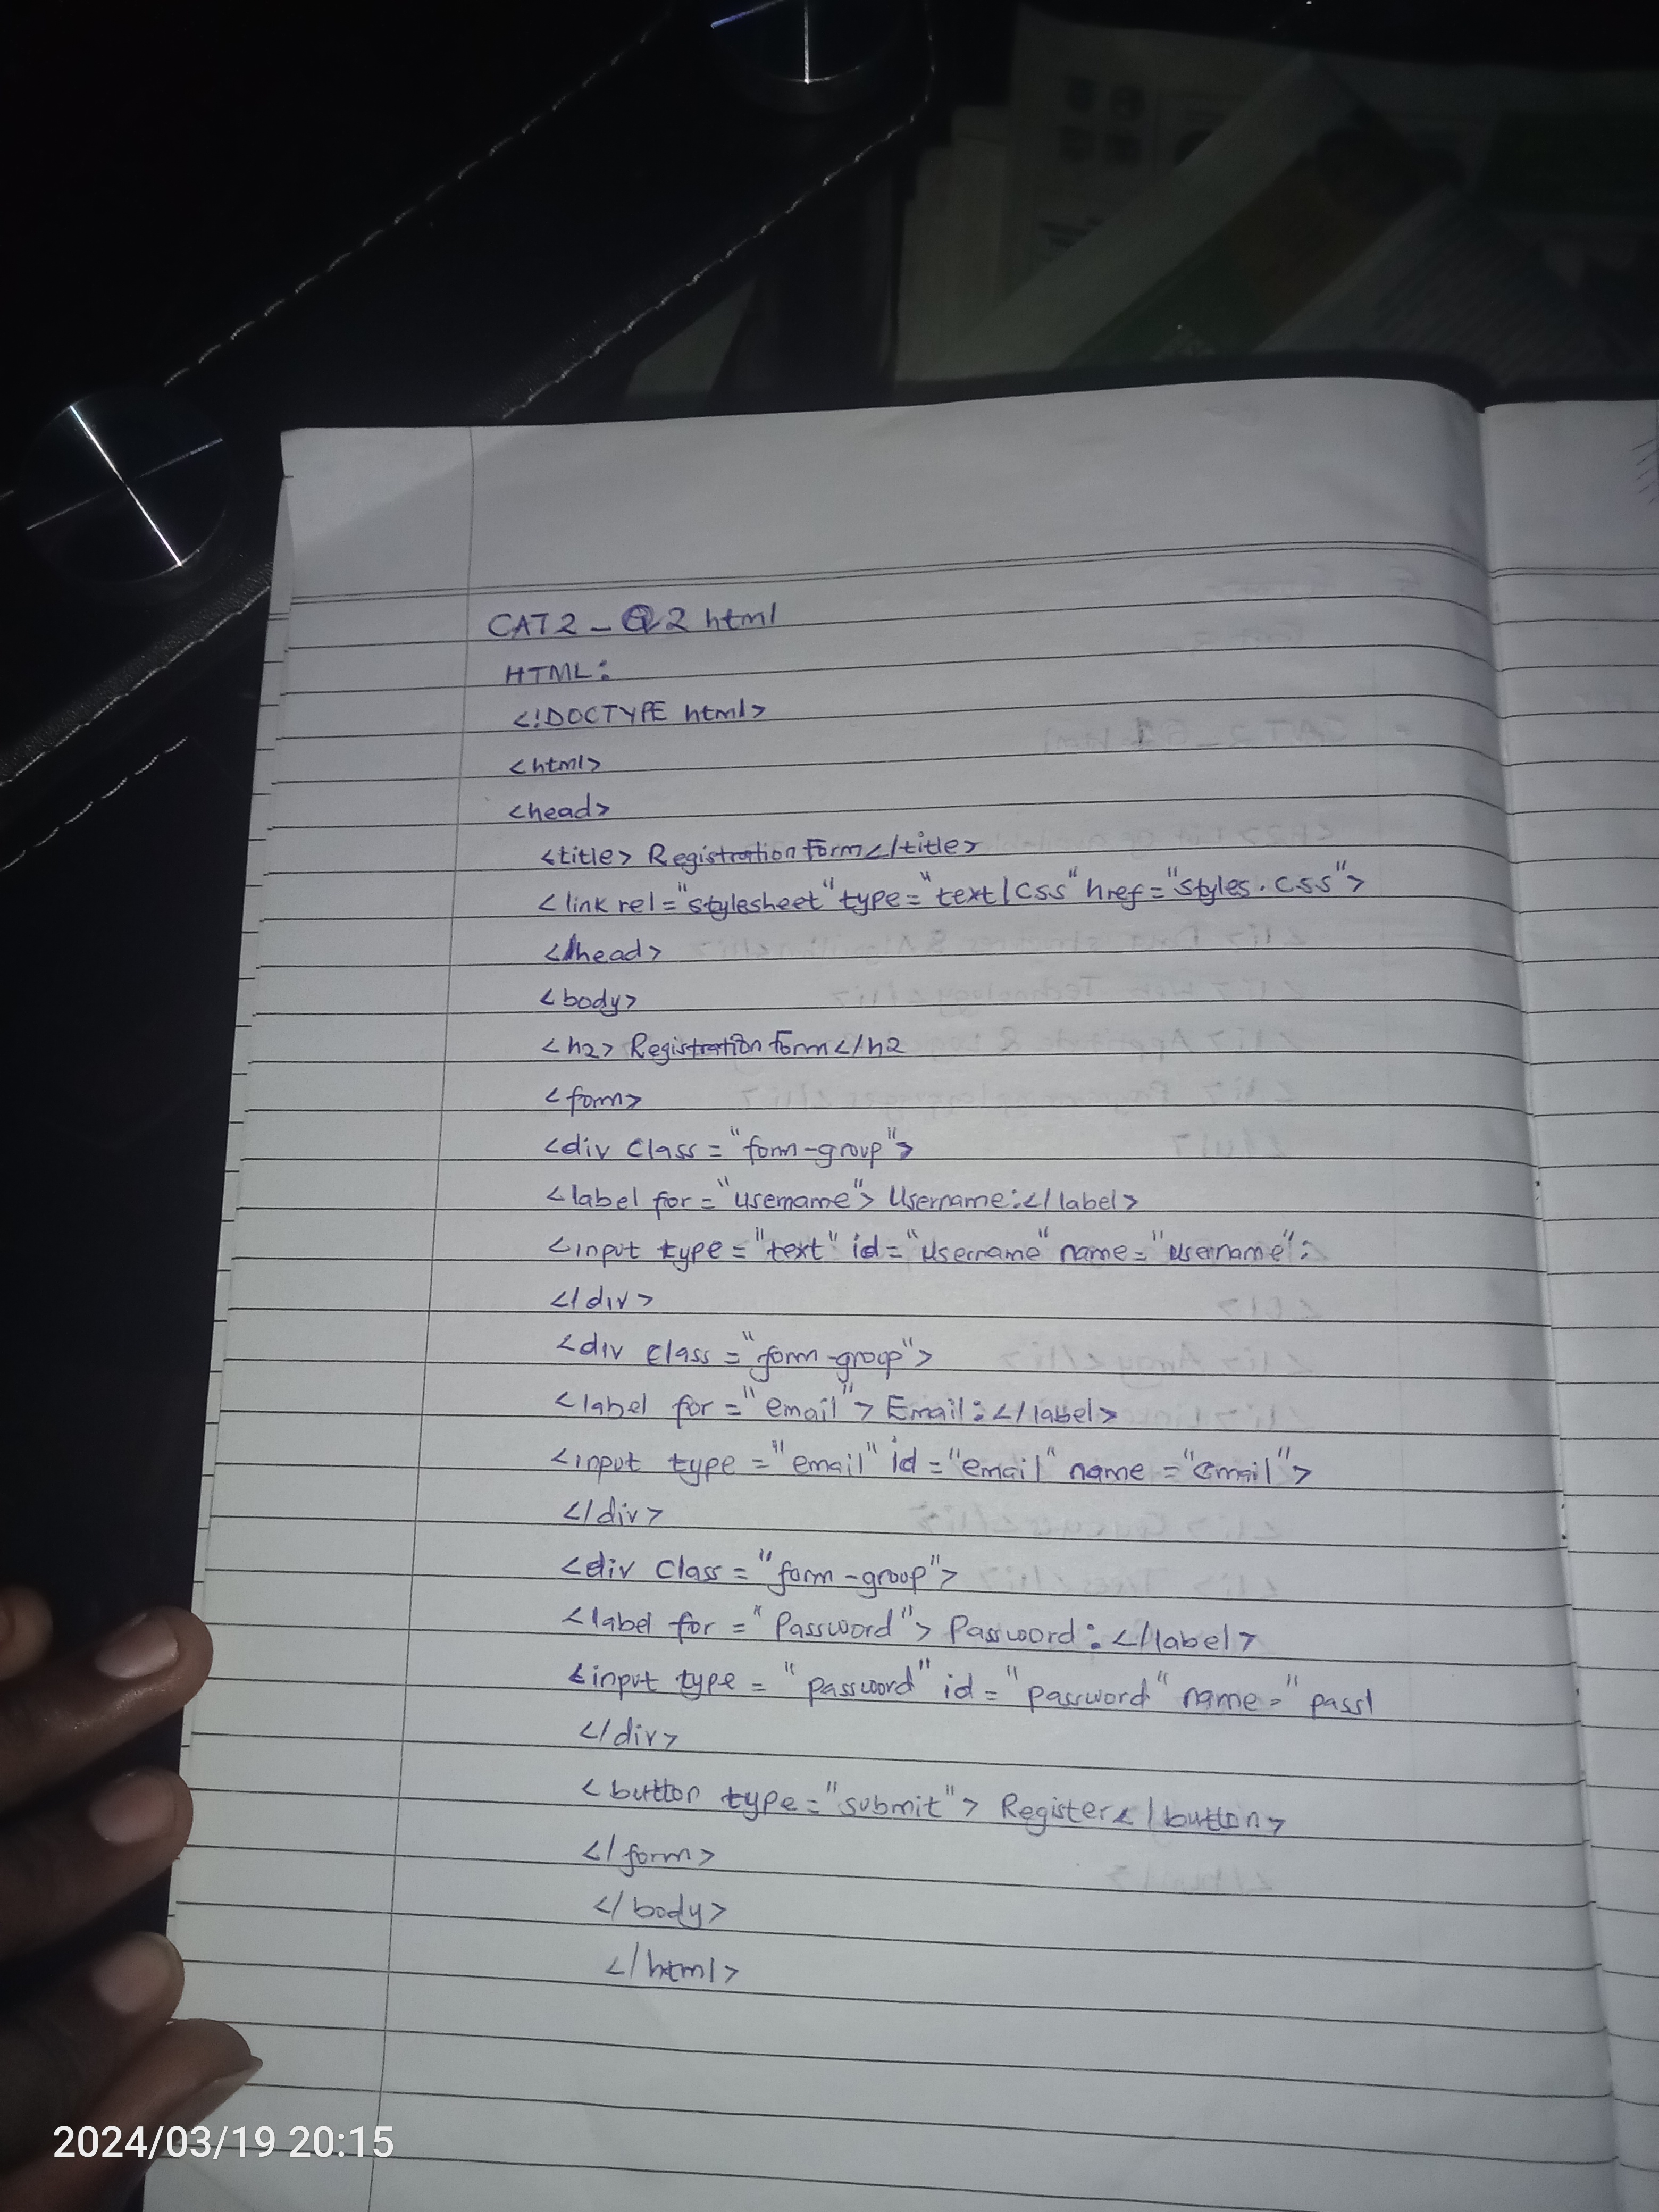 CAT2 - Q2 html
HTML:
<!DOCTYPE html>
<html>
<head>
<title> Registration Form</title>
<link rel="stylesheet" type="text/css" href="styles.css">
</head>
<body>
<h2> Registration form</h2
<form>
<div class="form-group">
<label for="username"> Username:</label>
<input type="text" id="username" name="username":
</div>
<div class="form-group">
<label for="email"> Email:</label>
<input type="email" id="email" name="email">
</div>
<div class="form-group">
<label for="Password"> Password:</label>
<input type="password" id="password" name="pass
</div>
<button type="submit"> Register</button>
</form>
</body>
</html>
2024/03/19 20:15